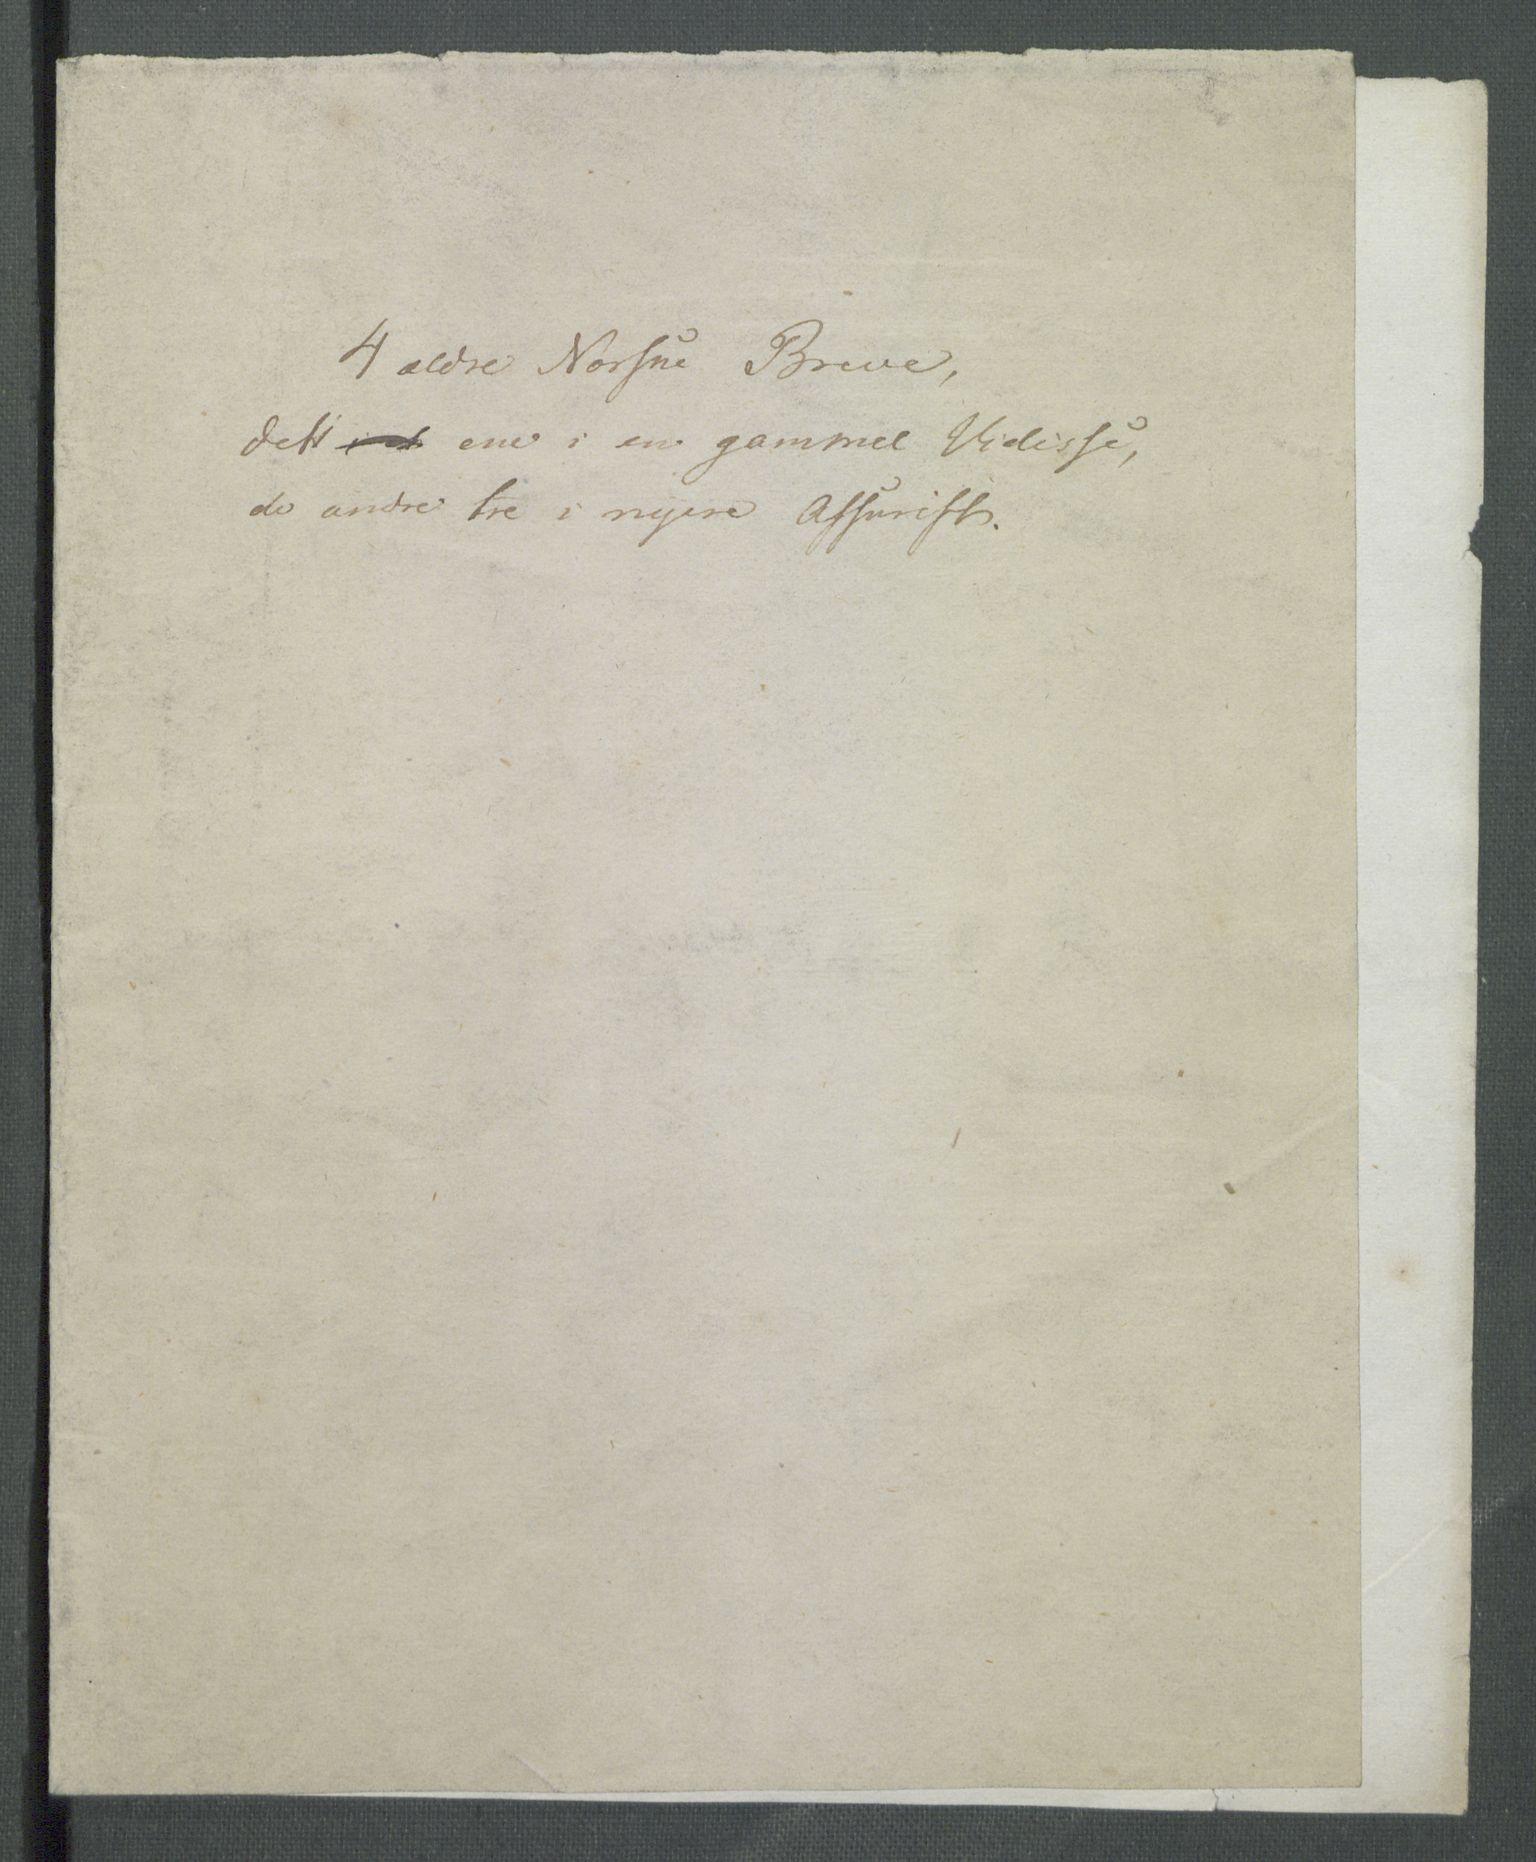 4 ældre Norske Breve,
dett ene i en gammel Vidisse,
de andre tre i nyere Afskrift.